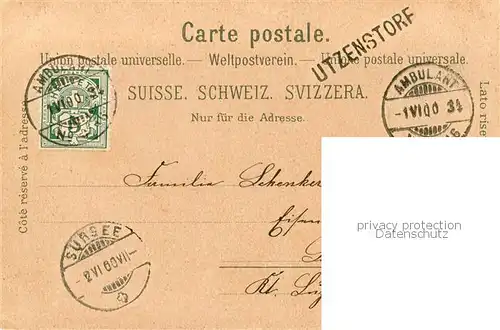 Carte postale.
Union postale universelle. — Weltpostverein. — Unione postale universale.
UTZENSTORF
SUISSE. SCHWEIZ. SVIZZERA.
Nur für die Adresse.
Côté réservé à l'adresse.
Lato ris
AMBULANT
1 VI 00
No
AMBULANT
-1 VI 00 3½
Familie Schenker
Eisen
Kt. Lu
SURSEE
-2 VI 00 VII-
privacy protection
Datenschutz